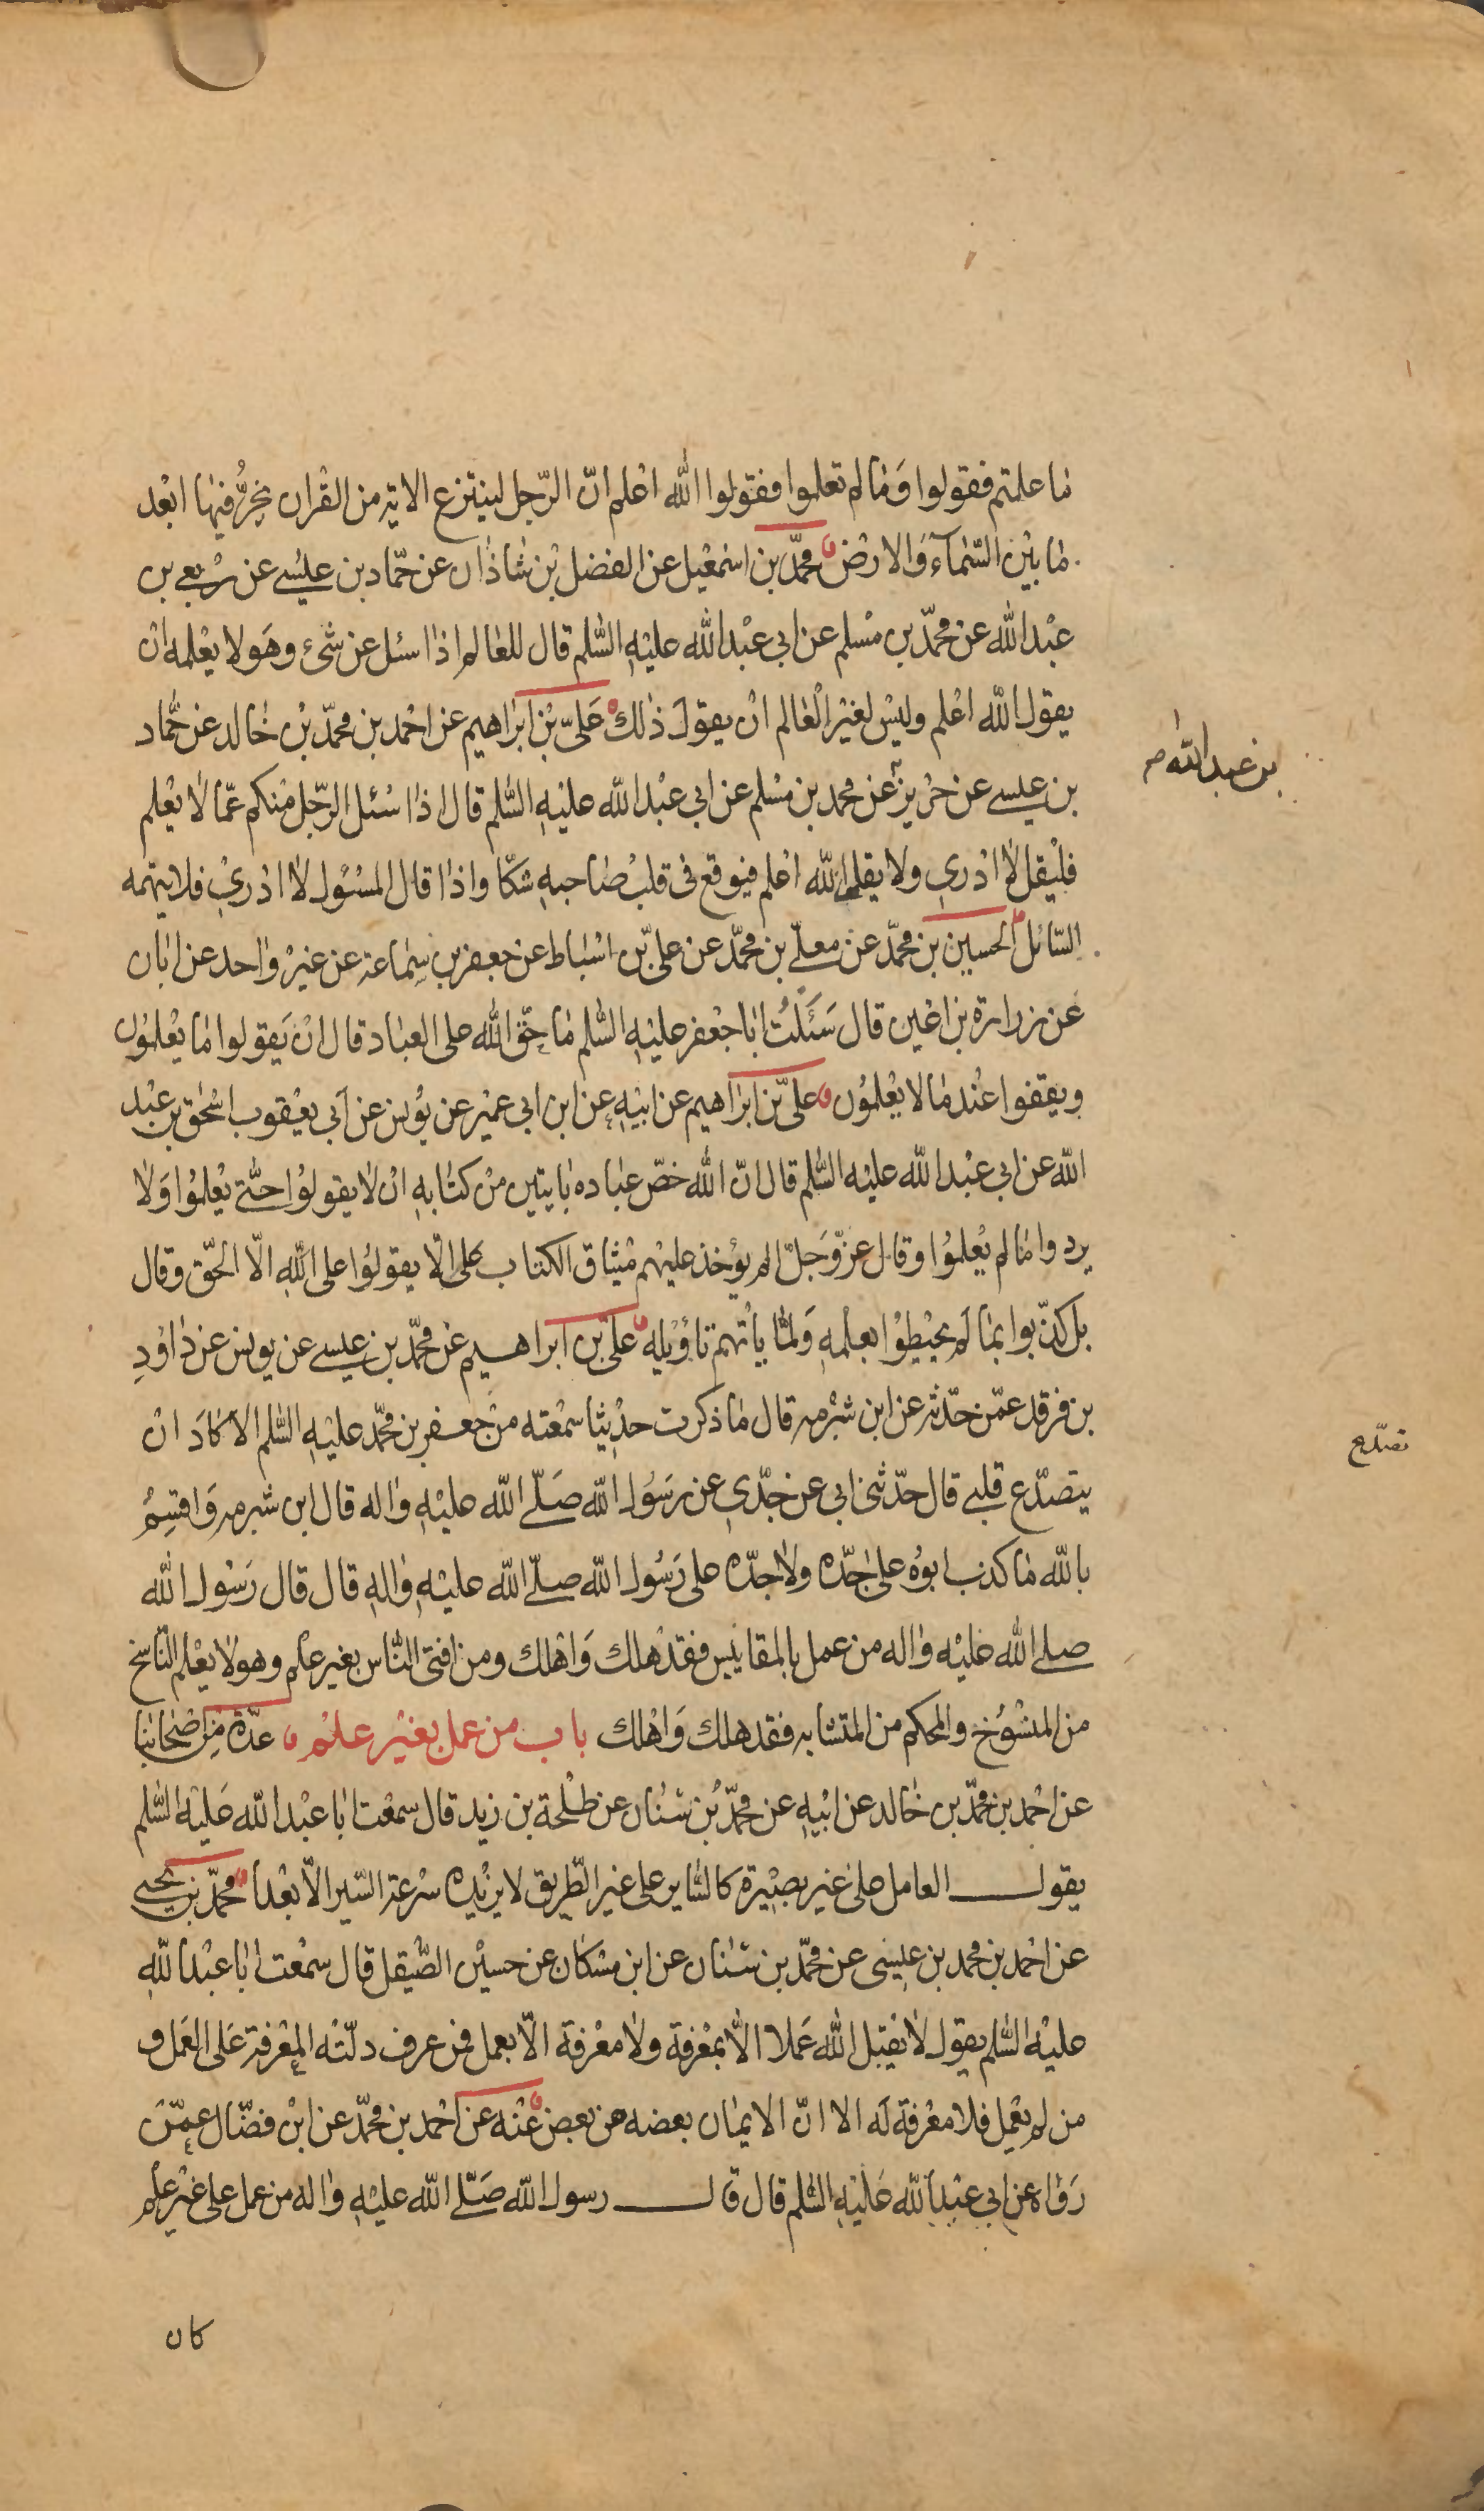 ما علمتم فقولوا وَما لم تعلموا فقولوا الله اعْلم انّ الرّجل لينتزع الاية من القرْان يخِرُّ فيها ابْعد
ما بيْن السّمآء وَالارْض محمّد بن اسمٰعيل عن الفضل بْن شاذان عن حمّاد بن عيسى عن ربعى بن
عبْد الله عن محمّد بن مسْلم عن ابى عبْد الله عليْهِ السّلم قال للعالم اذا سئل عن شىْء وهَو لا يعْلمه انْ
يقول الله اعْلم وليْس لغيْر الْعالم انْ يقولَ ذلك عَلىّ بْن ابراهيم عن احْمد بن محمّد بْن خالد عن حمّاد
بن عيسى عن حريز عن محمد بن مسْلم عن ابى عبْد الله عليْهِ السّلم قال اذا سُئل الرّجل منكم عمّا لا يعْلم
فليْقل لا ادْرى ولا يقل الله اعْلم فيوقع فى قلب صاحبهِ شكّا واذا قال المسْئول لا ادْرى فلا يتهمه
السّائل الحسين بن محمّد عن معلّى بن محمّد عن علىّ بن اسْباط عن جعفر بن سماعة عن غيْر واحد عن ابان
عن زرارة بن اعْين قال سَئَلْتُ ابا جعْفر عليْهِ السّلم ما حقّ الله على العباد قال انْ يَقولوا ما يعْلمُون
ويقفوا عنْد ما لا يعْلمُون علىّ بن ابراهيم عن ابيْهِ عن ابن ابى عميْر عن يوُنس عن اَبى يعْقوب اسْحٰق بن عبْد
الله عن ابى عبْد الله عليْه السّلم قال انّ الله خصّ عباده بايتين منْ كتابهِ انْ لا يقولوْا حتّى يعْلموُا وَلا
يردوا ما لم يعْلموُا وقال عزّ وَجلّ الم يوُخذ عليْهم ميْثاق الكتاب على الّا يقولوُا على اللهِ الّا الحقّ وقال
بل كذّبوا بما لَم يحيْطوْا بعلْمهِ وَلمّا يأتهم تاوْيله علىّ بن ابراهيم عن محمّد بن عيسى عن يونس عن داوُدِ
بن فرقد عمّن حدّثه عن ابن شبْرمه قال ما ذكرت حديْثا سمعْته منْ جعفر بن محمّد عليْهِ السّلم الّا كادَ انْ
يتصدّع قلبى قال حدّثنى ابى عن جدّى عن رَسُول الله صَلّى الله عليْهِ واله قال ابن شبرمه وَاقسِمُ
بالله ما كذب ابوُه على جدّه ولا جدّه على رَسُول الله صلّى الله عليْهِ والهِ قال قال رَسُول الله
صلى الله عليْه واله من عمل بالمقاييس فقدْ هلك وَاهْلك ومن افتى النّاس بغير علْم وهو لا يعْلم النّاسخ
من المنسُوخ والمحكم من المتشابه فقد هلك وَاهْلك باب من عمل بغيْر علْم عدّة مِن اصْحابنا
عن احْمد بن محمّد بن خالد عن ابيْهِ عن محمّد بْن سنان عن طلْحة بن زيد قال سمعْت ابا عبْد الله عَليْه السّلم
يقول العامل على غير بصيْرة كالسّاير على غير الطّريق لا يزيْده سرْعة السّير الّا بعْداً محمّد بن يحيى
عن احْمد بن محمد بن عيسى عن محمّد بن سنان عن ابن مسْكان عن حسيْن الصّيقل قال سمعْت ابا عبْد اللهِ
عليْه السّلم يقول لا يقْبل الله عَملا الّا بمعْرفة ولا معْرفة الّا بعمل فمن عرف دلّتْه المعْرفة عَلى العَمل و
من لم يعْمل فلا معْرفة لَه الا انّ الايمان بعضه من بعض عنْه عن احْمد بن محمّد عن ابْن فضّال عمّنْ
رَوٰاه عن ابى عبْد الله عَليْهِ السّلم قال قال رسول الله صَلّى الله عليْهِ واله من عمل على غيْر علْم
كان
بن عبد الله
تصدّع